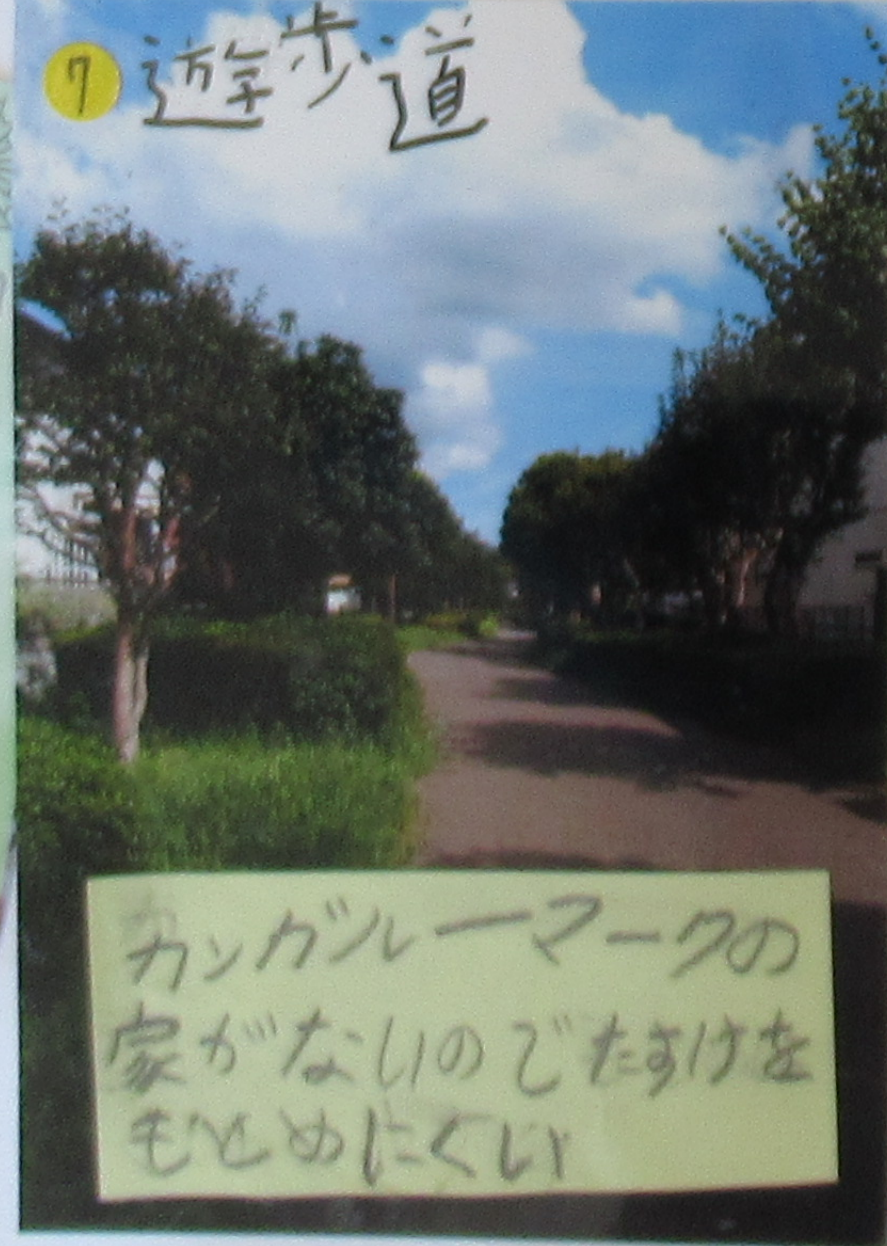 7 遊歩道
カンガルーマークの
家がないのでたすけを
もとめにくい